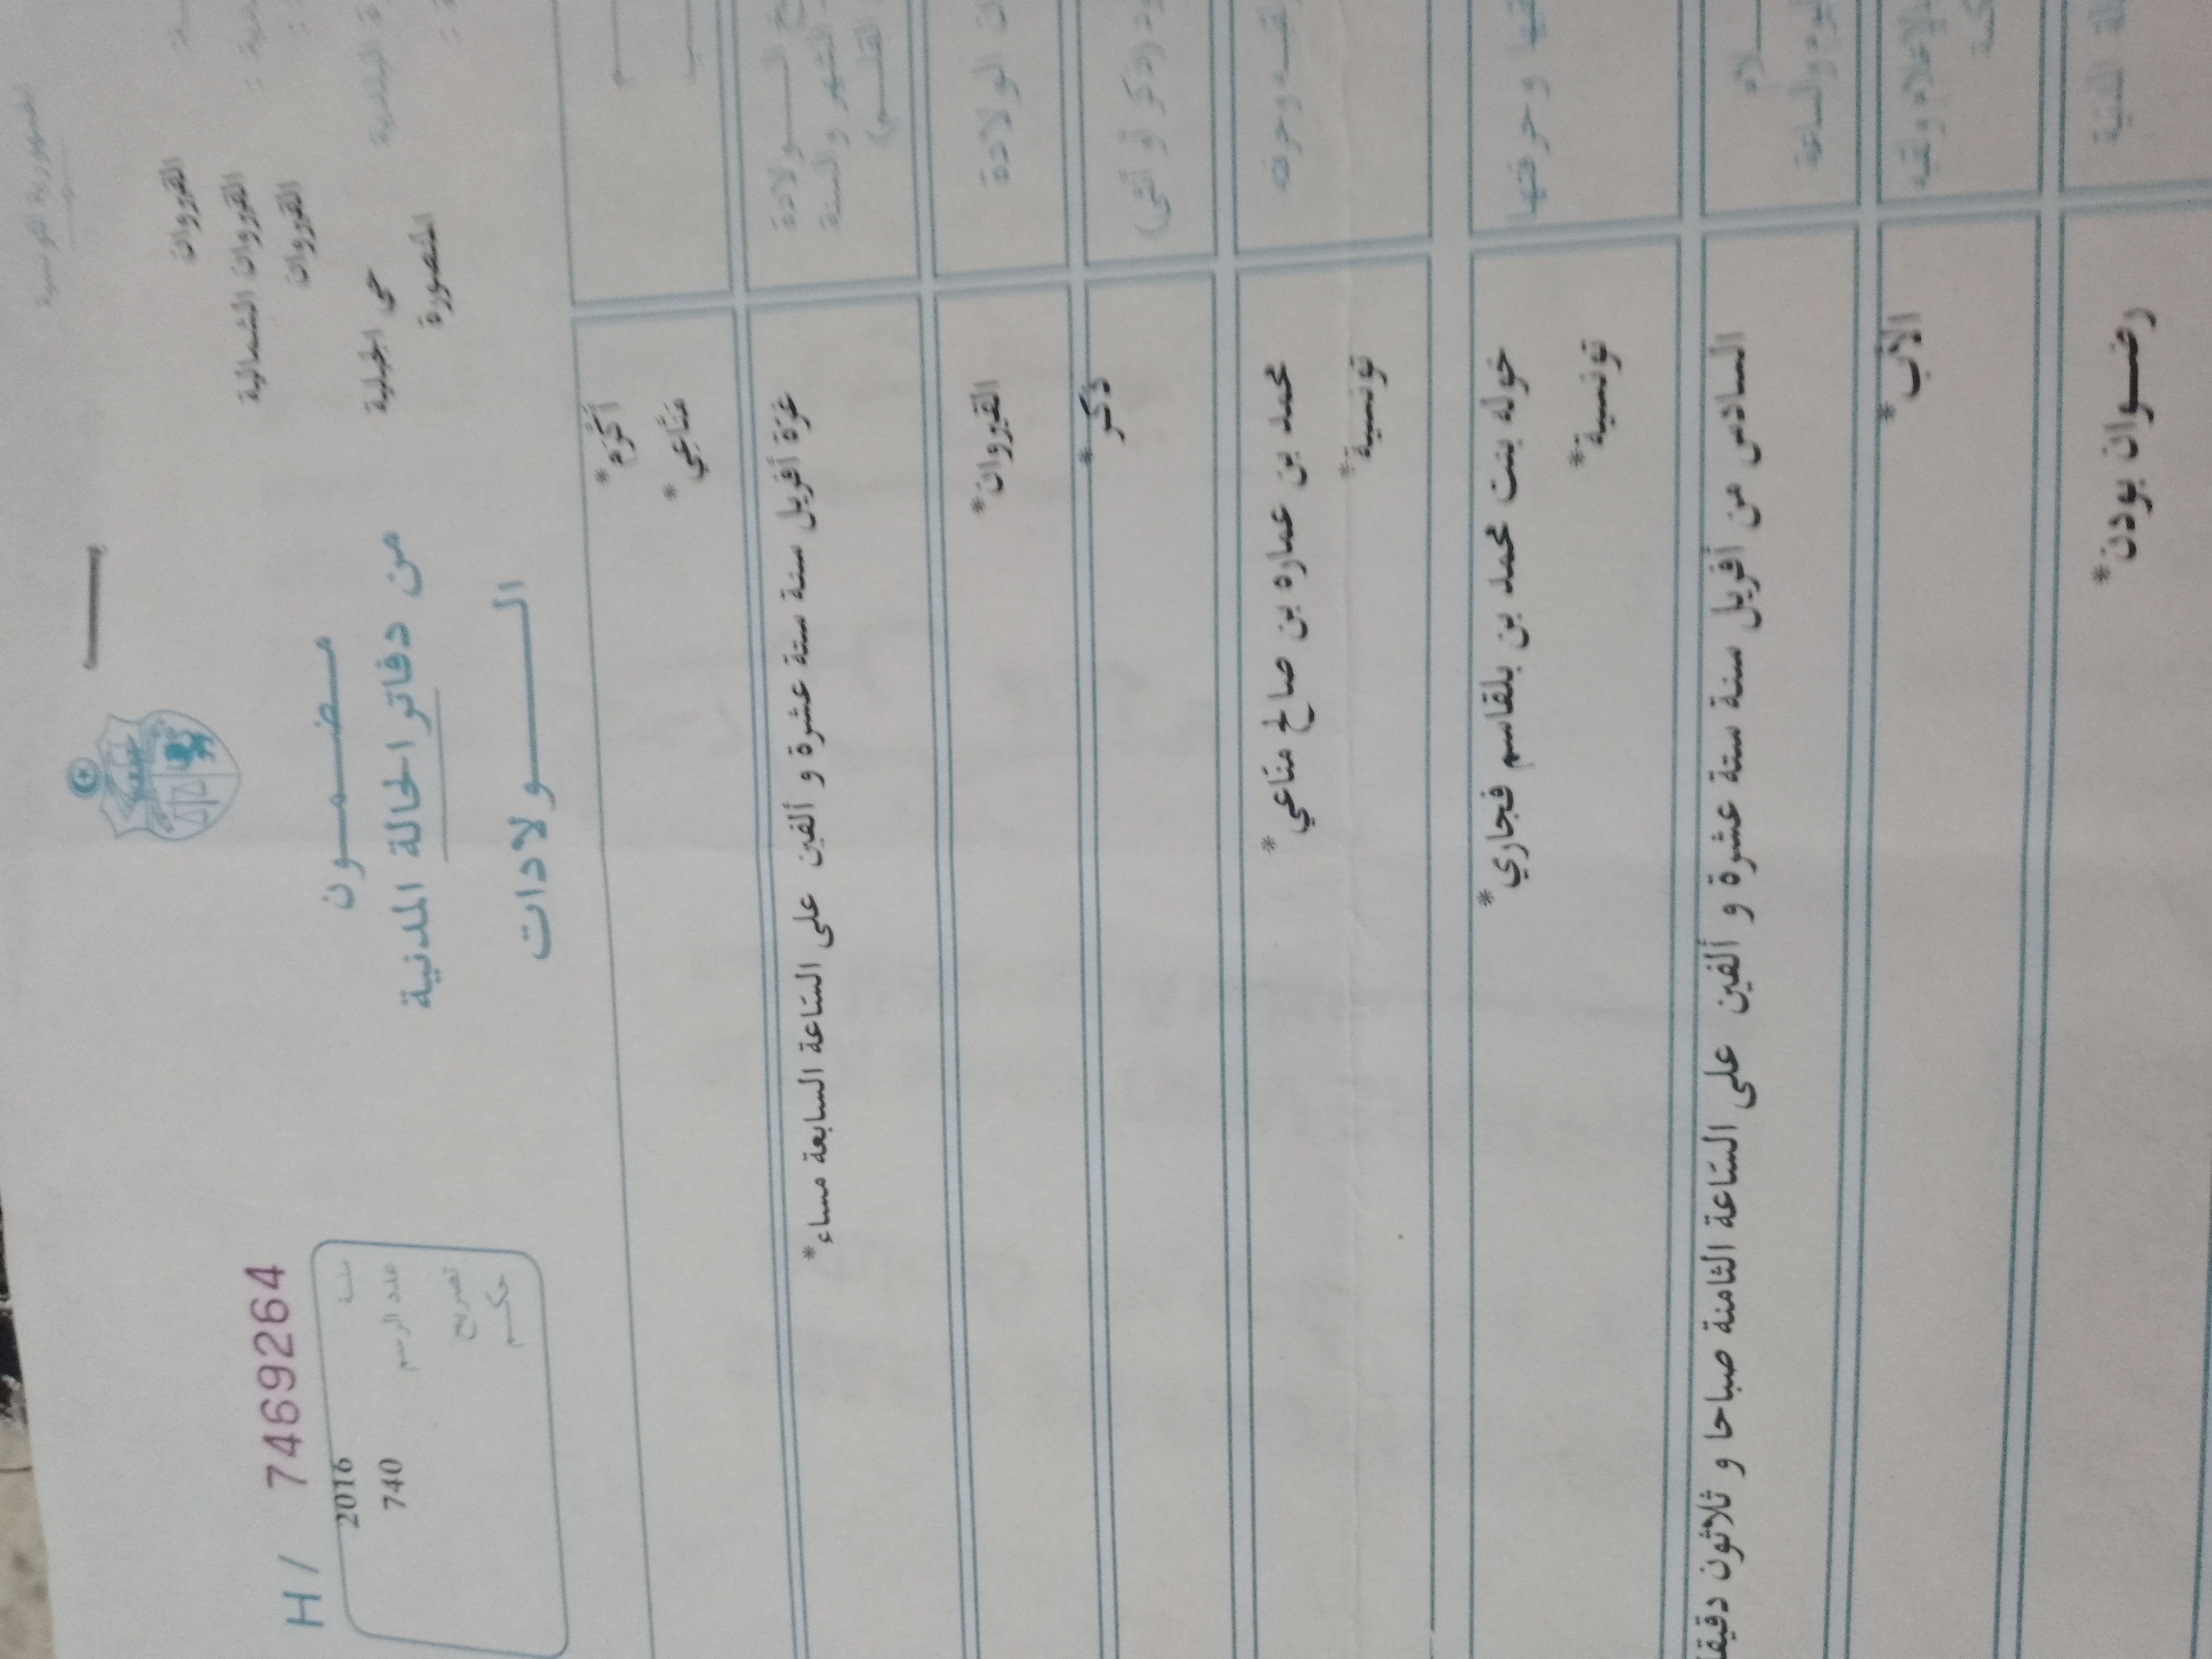 الجمهورية التونسية
القيروان
القيروان الشمالية
القيروان
حي الجبلية
المنصورة
مضمون
من دفاتر الحالة المدنية
الولادات
H / 7469264
سنة 2016
عدد الرسم 740
تصريح
حكم
أكرم*
مناعي*
غرة أفريل سنة ستة عشرة و ألفين على الساعة السابعة مساء*
ولادة
الشهر والسنة
ن الولادة
القيروان*
(ذكر أو أنثى)
ذكر*
محمد بن عماره بن صالح مناعي*
تونسية*
وحرفتها
خوله بنت محمد بن بلقاسم فجاري*
تونسية*
والساعة
السادس من أفريل سنة ستة عشرة و ألفين على الساعة الثامنة صباحا و ثلاثون دقيقة
بالإعلام ولقبه
الأب*
المدنية
رضوان بودن*